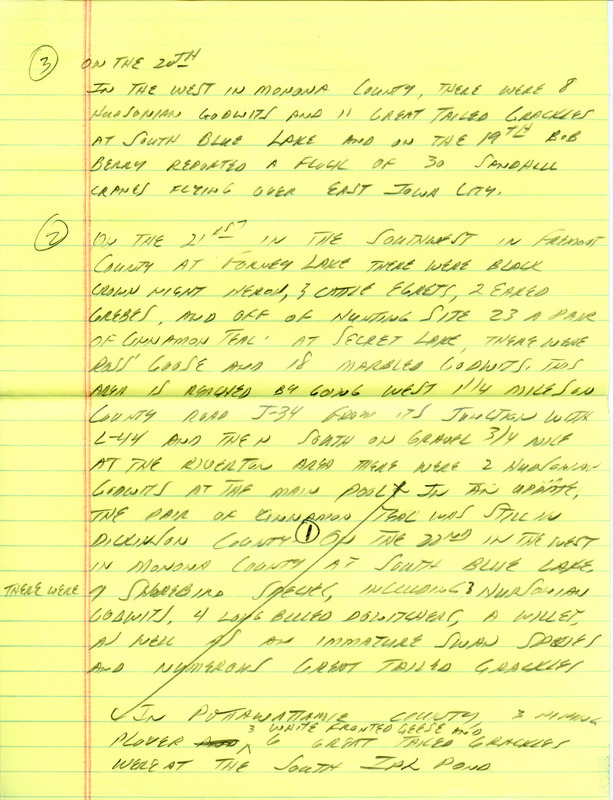 ③ ON THE 20TH
IN THE WEST IN MONONA COUNTY, THERE WERE 8
HUDSONIAN GODWITS AND 11 GREAT TAILED GRACKLES
AT SOUTH BLUE LAKE AND ON THE 19TH BOB
BERRY REPORTED A FLOCK OF 30 SANDHILL
CRANES FLYING OVER EAST IOWA CITY.
② ON THE 21ST IN THE SOUTHWEST IN FREMONT
COUNTY AT FORNEY LAKE THERE WERE BLACK
CROWN NIGHT HERON, 3 CATTLE EGRETS, 2 EARED
GREBES, AND OFF OF HUNTING SITE 23 A PAIR
OF CINNAMON TEAL. AT SECRET LAKE, THERE WERE
ROSS' GOOSE AND 18 MARBLED GODWITS. THIS
AREA IS REACHED BY GOING WEST 1 1/4 MILES ON
COUNTY ROAD J-34 FROM ITS JUNCTION WITH
L-44 AND THEN SOUTH ON GRAVEL 3/4 MILE
AT THE RIVERTON AREA THERE WERE 2 HUDSONIAN
GODWITS AT THE MAIN POOL. IN AN UPDATE,
THE PAIR OF CINNAMON TEAL WAS STILL IN
DICKINSON COUNTY ① ON THE 22ND IN THE WEST
IN MONONA COUNTY AT SOUTH BLUE LAKE,
THERE WERE 9 SHOREBIRD SPECIES, INCLUDING 3 HUDSONIAN
GODWITS, 4 LONG BILLED DOWITCHERS, A WILLET,
AS WELL AS AN IMMATURE SWAN SPECIES
AND NUMEROUS GREAT TAILED GRACKLES
✓ IN POTTAWATTAMIE COUNTY, 3 PIPING
PLOVER 3 WHITE FRONTED GEESE AND 6 GREAT TAILED GRACKLES
WERE AT THE SOUTH IPL POND